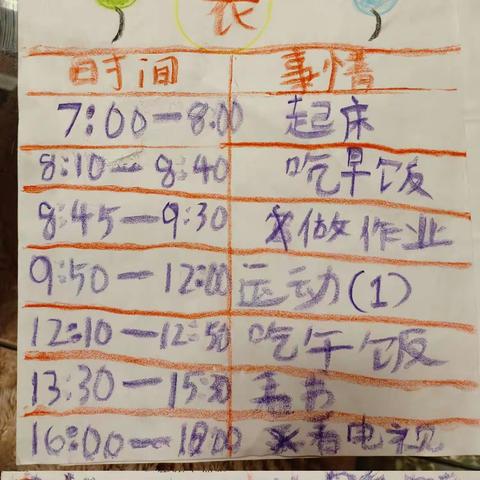 表
时间 事情
7:00—8:00 起床
8:10—8:40 吃早饭
8:45—9:30 做作业
9:50—12:00 运动(1)
12:10—12:50 吃午饭
13:30—15:30 看书
16:00—18:00 看电视